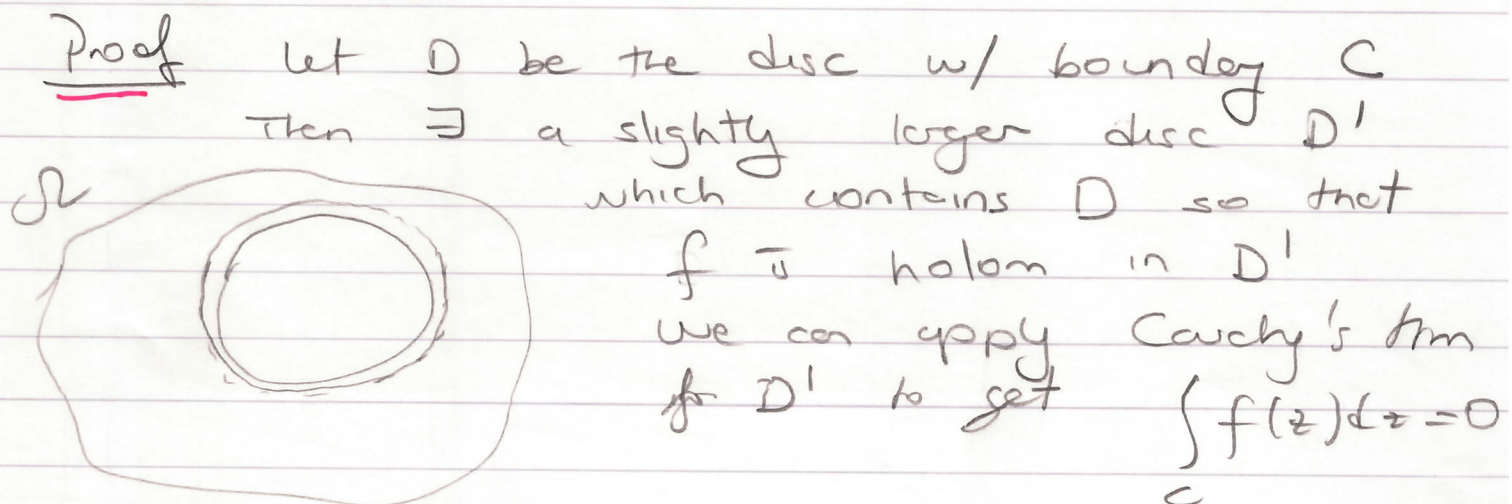 Proof Let D be the disc w/ boundary C
Then ∃ a slightly larger disc D'
Ω which contains D so that
f is holom in D'
we can apply Cauchy's thm
for D' to get ∫_C f(z)dz = 0